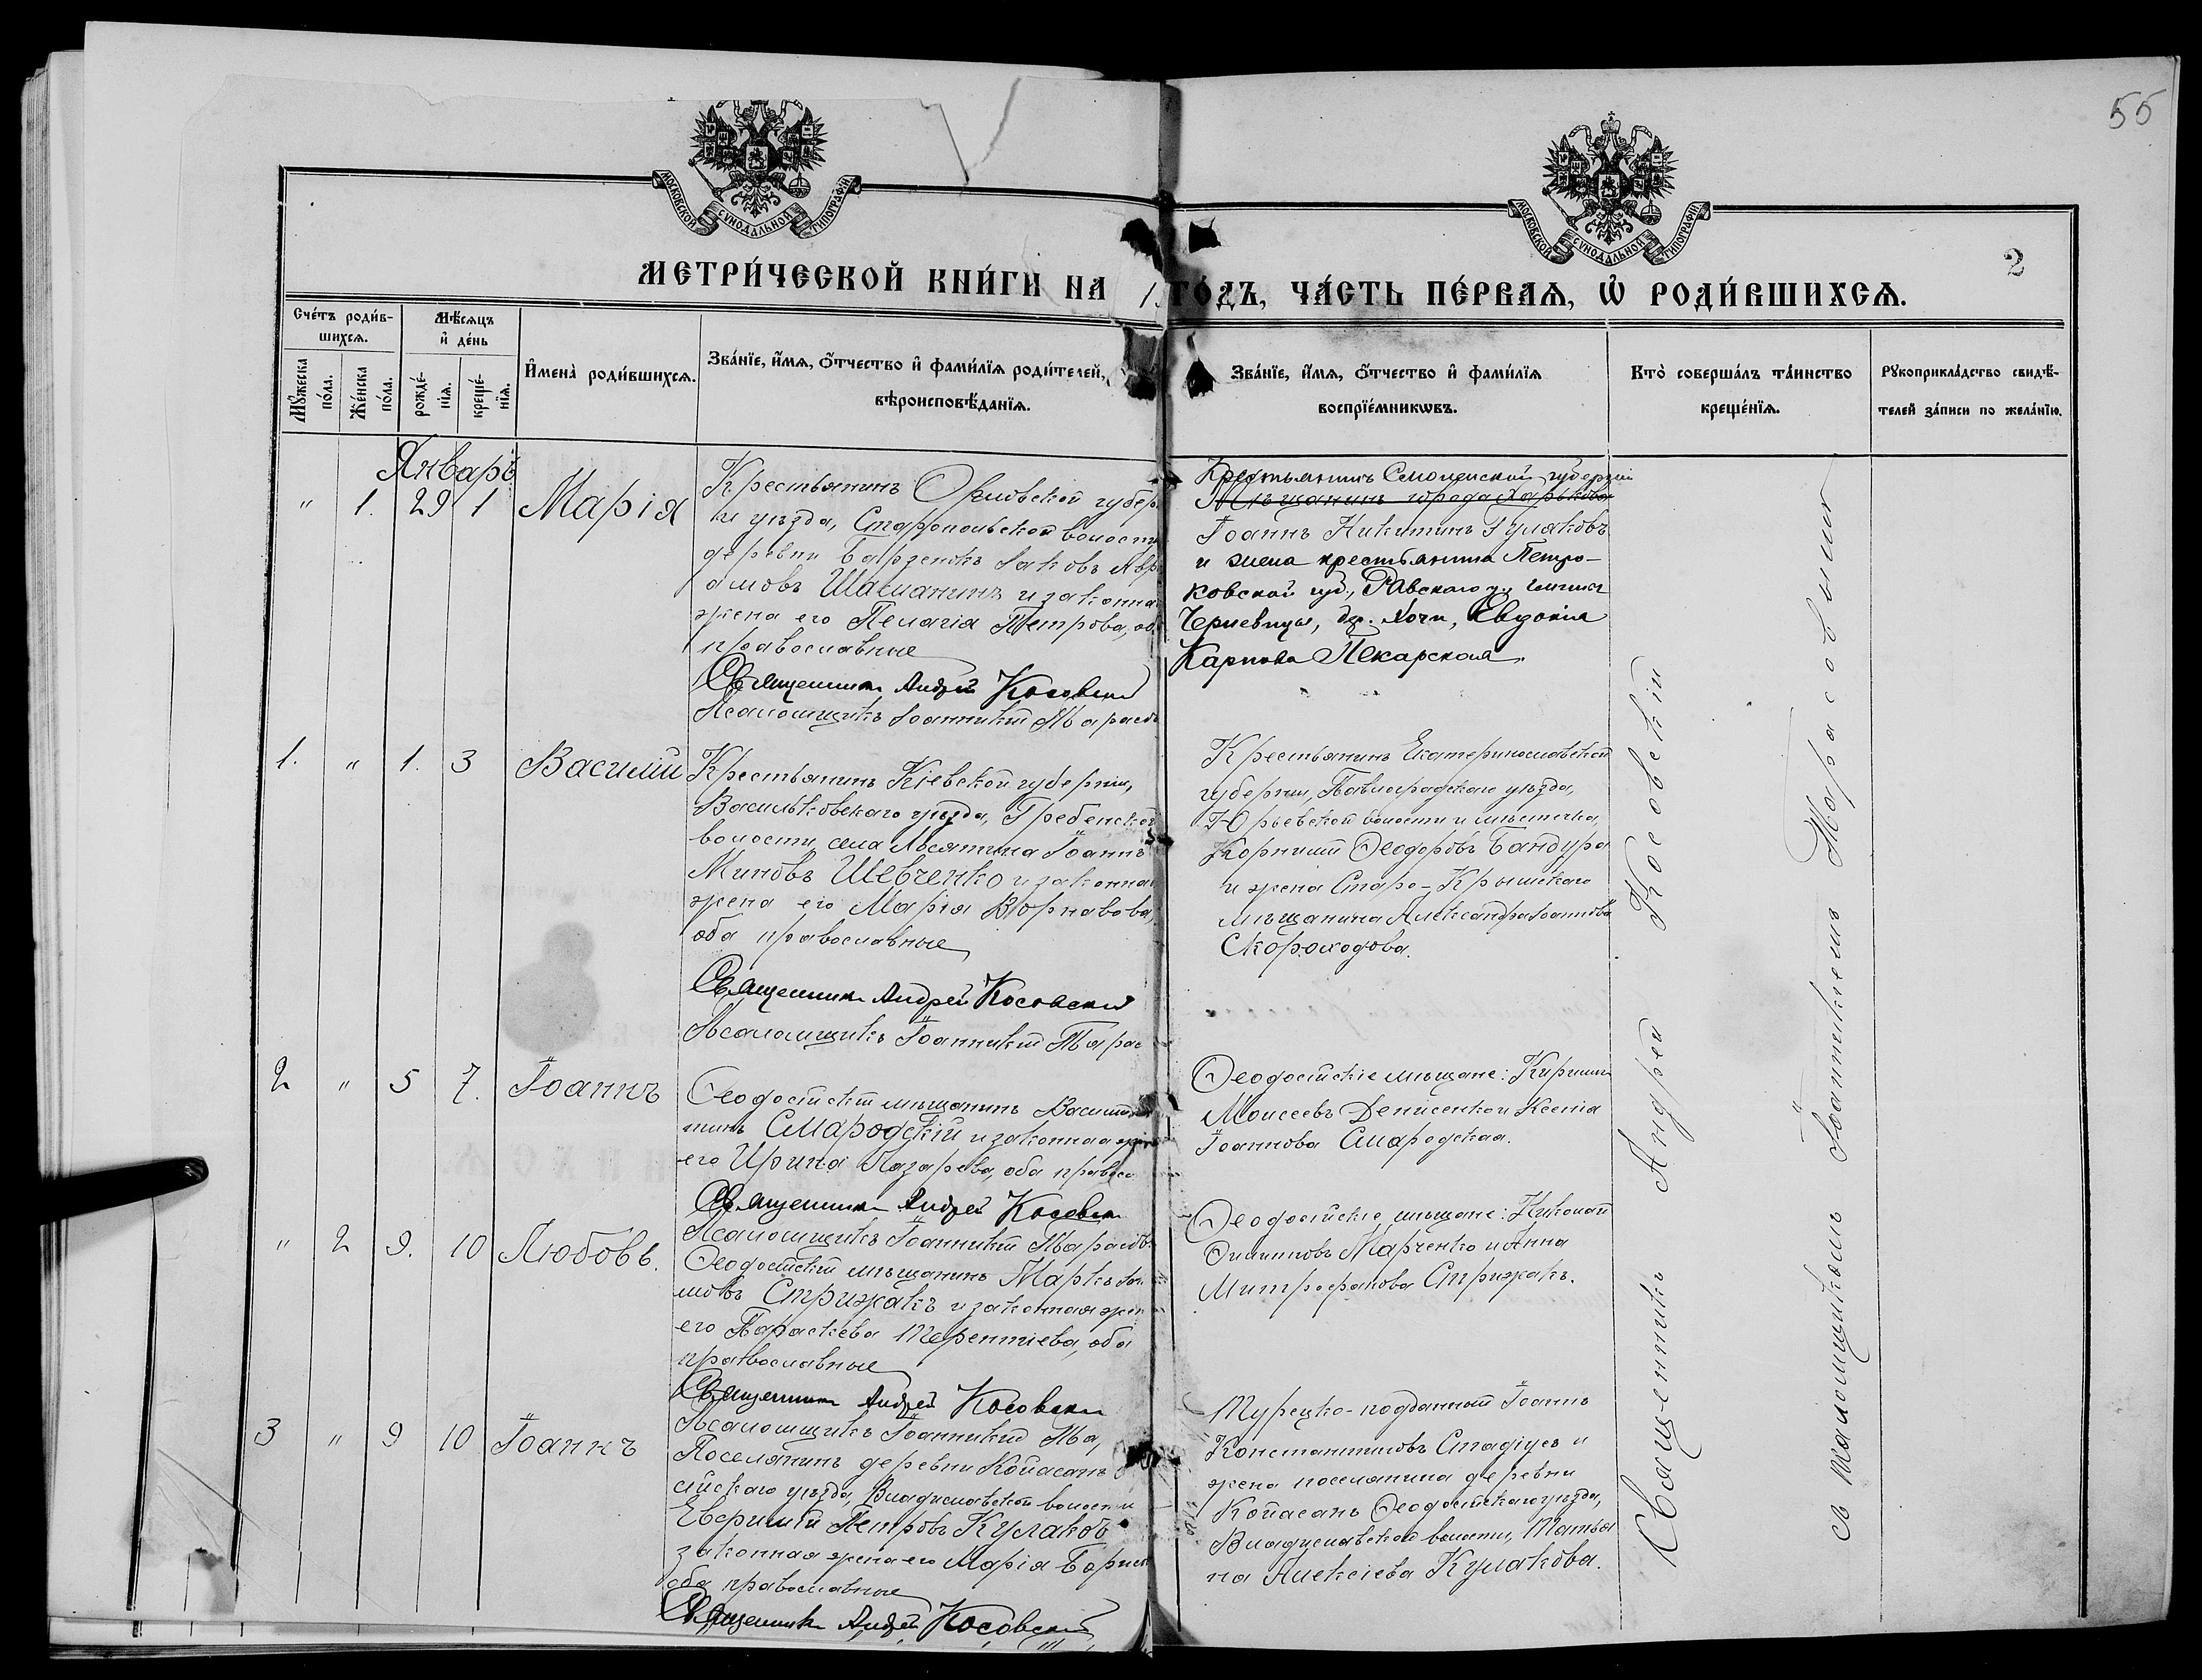 55
МОСКОВСКОЙ СѴНОДАЛЬНОЙ ТИПОГРАФІИ
МОСКОВСКОЙ СѴНОДАЛЬНОЙ ТИПОГРАФІИ
2
МЕТРИ́ЧЕСКОЙ КНИ́ГИ НА 1. ГО́ДЪ, ЧА́СТЬ ПЕ́РВАѦ, Ѡ҆ РОДИ́ВШИХСѦ.
Сче́тъ роди́в-
шихсѧ.
Мꙋ́жеска по́ла.
Же́нска по́ла.
Мѣ́сѧцъ
и҆ де́нь
рожде́-
нїѧ.
креще́-
нїѧ.
И҆мена̀ роди́вшихсѧ.
Зва́нїе, и҆́мѧ, ѻ҆́тчество и҆ фами́лїѧ роди́телей,
вѣроисповѣ́данїѧ.
Зва́нїе, и҆́мѧ, ѻ҆́тчество и҆ фами́лїѧ
воспрїе́мникѡвъ.
Кто̀ соверша́лъ та́инство
креще́нїѧ.
Рꙋкоприкла́дство свидѣ́-
телей за́писи по жела́нїю.
Январь
" 1. 29 1 Марія
Крестьянинъ Орловской губер
и уѣзда, Старопольской волости
деревни Іаковъ Авр
амовъ Шаманинъ и законна
жена его Пелагія Петрова, об
православные
Священникъ Андрей Косовскій
Псаломщикъ Іоанникій Тарасов
Крестьянинъ Смоленской губерніи
Мѣщанинъ города Харькова
Іоаннъ Никитинъ Гуляковъ
и жена крестьянина Петро-
ковской губ., Равскаго у., гмины
Черневицы, др. Хочи, Евдокія
Карпова Пекарская.
1. " 1. 3 Василій
Крестьянинъ Кіевской губерніи,
Васильковскаго уѣзда, Гребенской
волости, села Іоаннъ
Миновъ Шевченко и законная
жена его Марія
оба православные
Священникъ Андрей Косовскій
Псаломщикъ Іоанникій Тарас
Крестьянинъ Екатеринославской
губерніи, Павлоградскаго уѣзда,
Юрьевской волости и мѣстечка,
Корнилій Ѳеодоровъ Бандура
и жена Старо-Крымскаго
мѣщанина Александра Іоаннова
Скороходова.
2 " 5 7. Іоаннъ
Ѳеодосійскій мѣщанинъ Василій
тинъ Смародскій и законная жена
его Ирина Лазарева, оба правосл
Священникъ Андрей Косовскій
Псаломщикъ Іоанникій Тарасовъ
Ѳеодосійскіе мѣщане: Кириллъ
Моисеевъ Денисенко и Ксенія
Іоаннова Смародская.
" 2 9. 10 Любовь.
Ѳеодосійскій мѣщанинъ Маркъ
мовъ Стрижакъ и законная жен
его Параскева Терентіева, оба
православные
Священникъ Андрей Косовскій
Псаломщикъ Іоанникій Та
Ѳеодосійскіе мѣщане: Николай
Филипповъ Марченко и Анна
Митрофанова Стрижакъ.
3 " 9 10 Іоаннъ
Поселянинъ деревни Койасанъ
сійскаго уѣзда, Владиславской волости
Евфимій Петровъ Кулаковъ
законная жена его Марія Борис
оба православные
Священникъ Андрей Косовскій
Турецко-подданный Іоаннъ
Константиновъ и
жена поселянина деревни
Койасанъ Ѳеодосійскаго уѣзда,
Владиславской волости, Татья
на Алексіева Кулакова.
Священникъ Андрей Косовскій
съ псаломщикомъ Іоанникіемъ Тарасовымъ